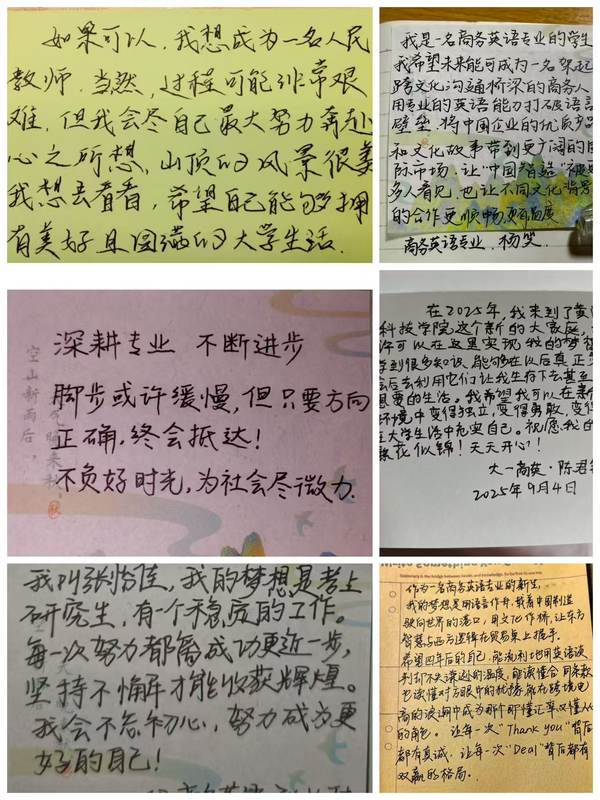 如果可以,我想成为一名人民
教师。当然,过程可能非常艰
难,但我会尽自己最大努力奔赴
心之所想,山顶的风景很美
我想去看看,希望自己能够拥
有美好且圆满的大学生活.
我是一名商务英语专业的学生
我希望未来能可成为一名架起
跨文化沟通桥梁的商务人
用专业的英语能力打破语言
壁垒,将中国企业的优质产品
和文化故事带到更广阔的国
际市场,让"中国
多人看见,也让不同文化背景
的合作更顺畅,更有高度
商务英语专业.杨笑
空山新雨后
天气晚来秋
深耕专业 不断进步
脚步或许缓慢,但只要方向
正确,终会抵达!
不负好时光,为社会尽微力.
在2025年,我来到了黄
科技学院这个新的大家庭,
许可以在这里实现我的梦想
学到很多知识,能够在以后真正
会后去利用它们让我生存下去甚至
想要的生活。我希望我可以在新
环境中变得独立,变得勇敢,变得
在大学生活中充实自己。祝愿我的
繁花似锦!天天开心!!
大一商英·陈君
2025年9月4日
我叫张怡佳,我的梦想是考上
研究生,有一个稳定的工作。
每一次努力都离成功更近一步,
坚持不懈才能收获辉煌。
我会不忘初心,努力成为更
好的自己!
Write Something
作为一名商务英语专业的新生,
我的梦想是用语言作舟,载着中国制造
驶向世界的港口,用文化作桥,让东方
智慧与西方逻辑在贸易桌上握手。
希望四年后的自己,能流利地用英语谈
判却不失深处的温度,能读懂合同条款
也读懂对方眼中的犹豫,能在跨境电
商的浪潮中成为那个即懂汇率又懂人心
的角色。让每一次"Thank you"背后
都有真诚,让每一次"Deal"背后都有
双赢的格局。